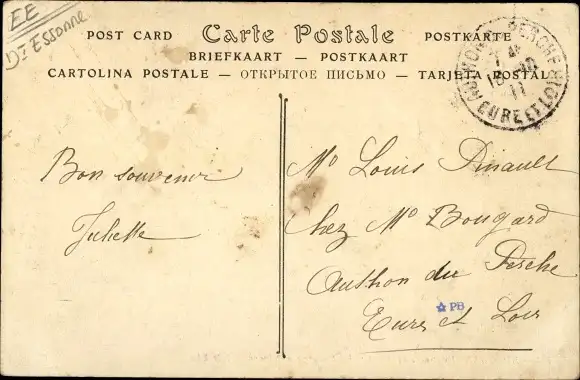 EE
Dt Essonne
POST CARD Carte Postale POSTKARTE
BRIEFKAART — POSTKAART
CARTOLINA POSTALE — ОТКРЫТОЕ ПИСЬМО — TARJETA POSTAL
PERCHE
EURE ET LOIR
Bon souvenir
Juliette
Mr Louis Pinault
chez Mr Bougard
Authon du Perche
Eure et Loir
PB